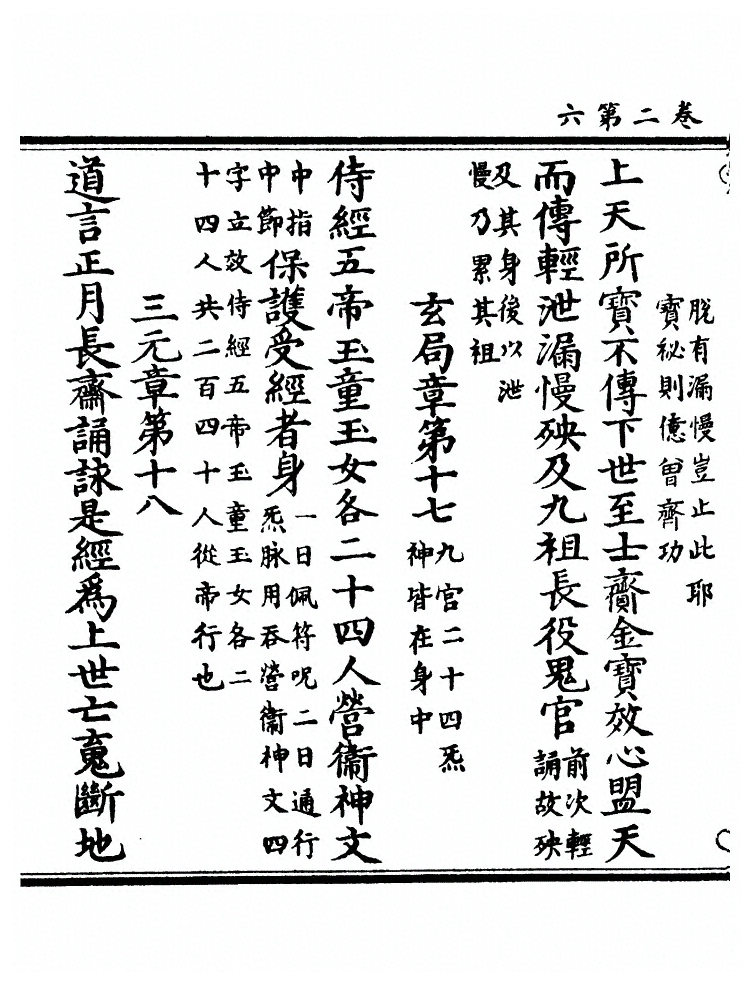 卷二第六
脫有漏慢豈止此耶
寶秘則億曾齊功
上天所寶不傳下世至士齎金寶效心盟天
而傳輕泄漏慢殃及九祖長役鬼官
前次輕
誦故殃
及其身後以泄
慢乃累其祖
玄局章第十七
九宮二十四炁
神皆在身中
侍經五帝玉童玉女各二十四人營衛神文
中指
中節
保護受經者身
一日佩符呪二日通行
炁脉用吞營衛神文四
字立效侍經五帝玉童玉女各二
十四人共二百四十人從帝行也
三元章第十八
道言正月長齋誦詠是經爲上世亡䰟斷地